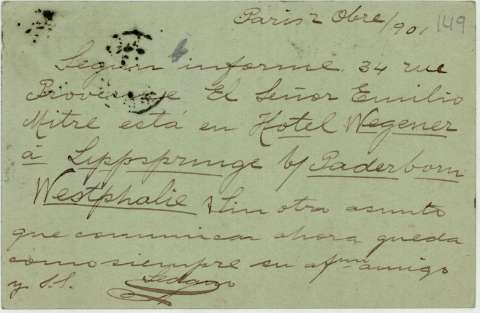 Paris 2 Obre/901 149
Segun informe 34 rue
Provensase El Señor Emilio
Mitre está en Hotel Wegener
á Lippspringe b/ Paderborn
Westphalie & Sin otro asunto
que comunicar ahora queda
como siempre su afmo amigo
y S.S.